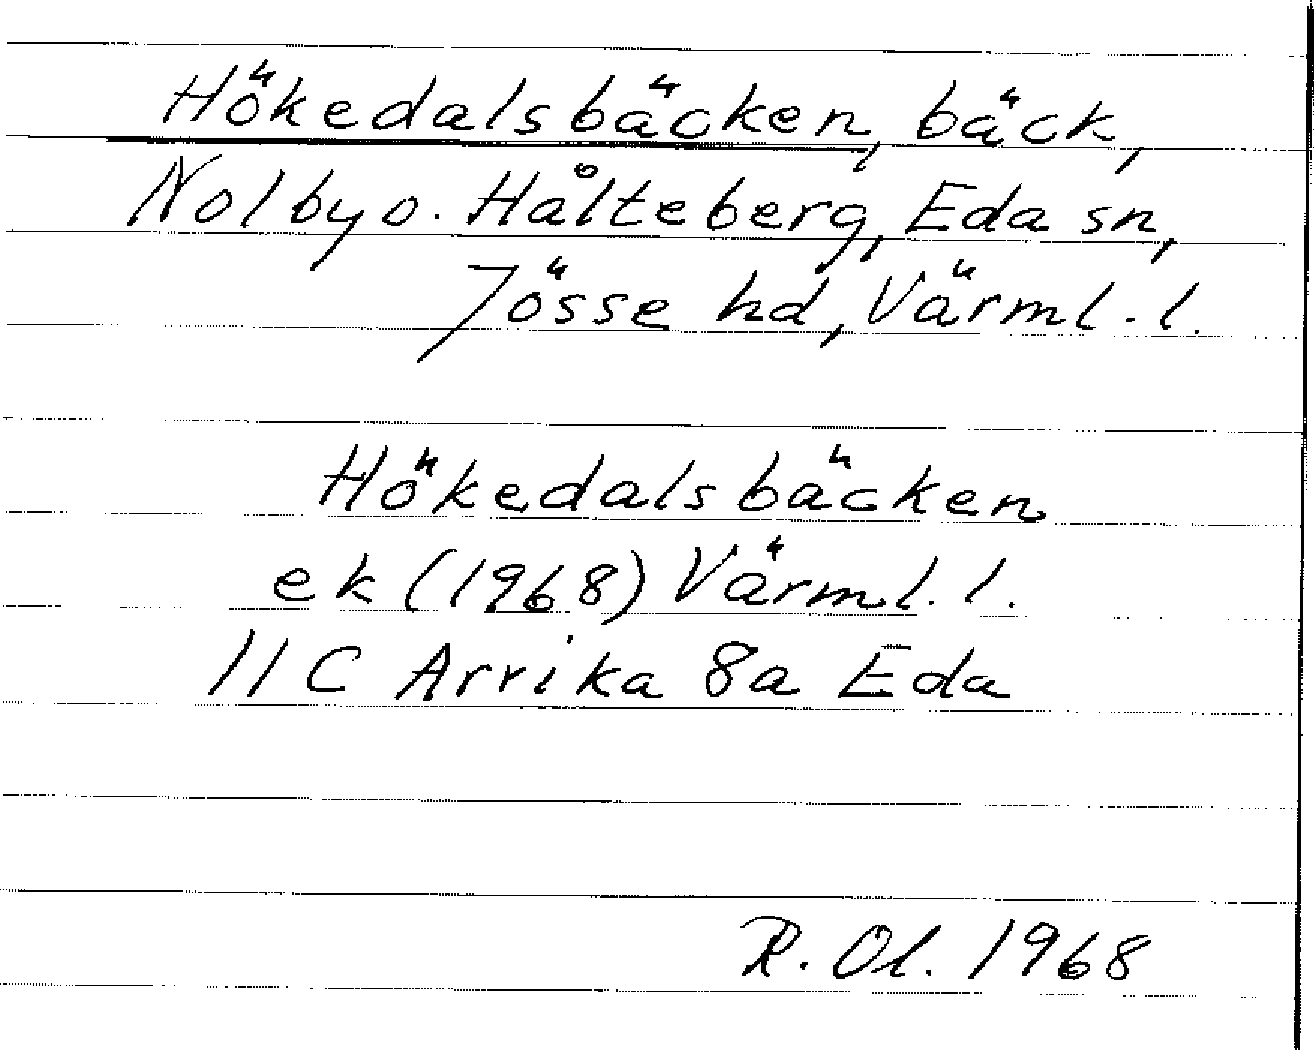 Hökedalsbäcken, bäck,
Nolby o. Hålteberg, Eda sn,
Jösse hd, Värml. l.
Hökedalsbäcken
ek (1968) Värml. l.
11C Arrika 8a Eda
R. Ol. 1968